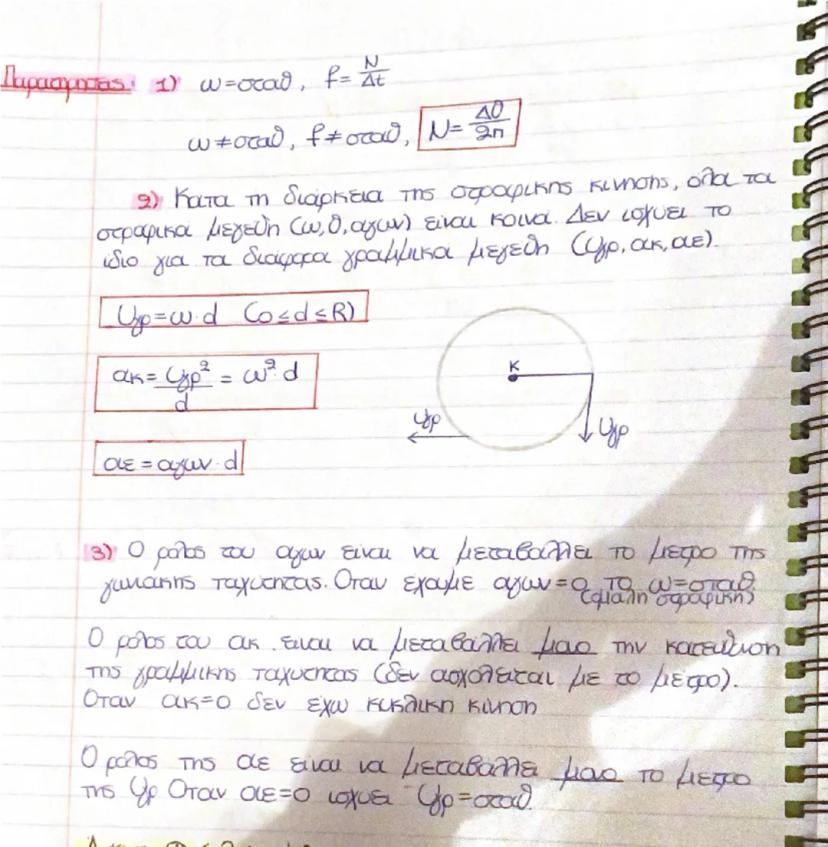 Παρατηρησεις: 1) ω=σταθ, f= N/Δt
ω≠σταθ, f≠σταθ, N= Δθ/2π
2) Κατα τη διάρκεια της στροφικης κινησης, ολα τα
στροφικα μεγεθη (ω,θ,αγων) ειναι κοινα. Δεν ισχυει το
ιδιο για τα διαφορα γραμμικα μεγεθη (Uγρ, ακ, αε).
Uγρ=ω·d (0≤d≤R)
ακ= Uγρ²/d = ω²·d
K
Uγρ
Uγρ
αε=αγων·d
3) Ο ρολος του αγων ειναι να μεταβαλλει το μετρο της
γωνιακης ταχυτητας. Οταν εχουμε αγων=0 το ω=σταθ
(ομαλη στροφικη)
Ο ρολος του ακ ειναι να μεταβαλλει μονο την κατευθυνση
της γραμμικης ταχυτητας (δεν ασχολειται με το μετρο).
Οταν ακ=0 δεν εχω κυκλικη κινηση
Ο ρολος της αε ειναι να μεταβαλλει μονο το μετρο
της Uγρ Οταν αε=0 ισχυει Uγρ=σταθ.